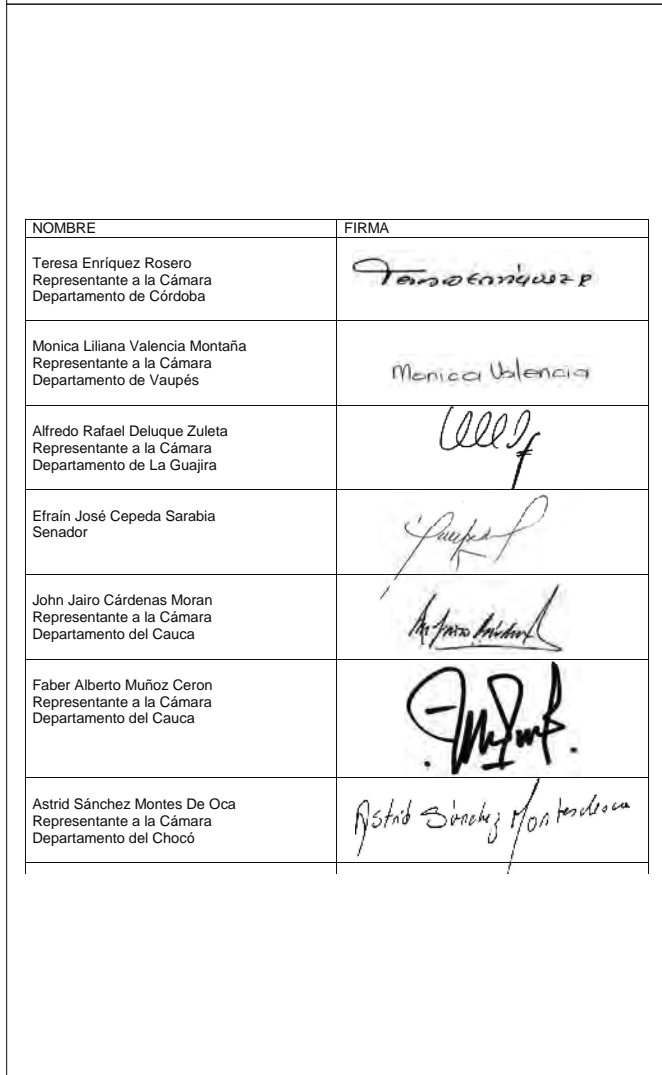 NOMBRE FIRMA
Teresa Enríquez Rosero
Representante a la Cámara
Departamento de Córdoba
Teresa Enríquez R
Monica Liliana Valencia Montaña
Representante a la Cámara
Departamento de Vaupés
Monica Valencia
Alfredo Rafael Deluque Zuleta
Representante a la Cámara
Departamento de La Guajira
Efraín José Cepeda Sarabia
Senador
John Jairo Cárdenas Moran
Representante a la Cámara
Departamento del Cauca
Faber Alberto Muñoz Ceron
Representante a la Cámara
Departamento del Cauca
Astrid Sánchez Montes De Oca
Representante a la Cámara
Departamento del Chocó
Astrid Sánchez Montesdeoca